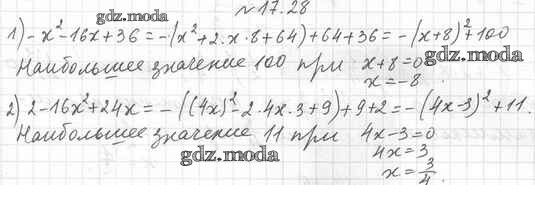 №17.28
gdz.moda
1) -x²-16x+36=-(x²+2·x·8+64)+64+36=-(x+8)²+100
Наибольшее значение 100 при x+8=0
x=-8.
gdz.moda
2) 2-16x²+24x=-((4x)²-2·4x·3+9)+9+2=-(4x-3)²+11.
Наибольшее значение 11 при 4x-3=0
gdz.moda
4x=3
x=3/4.
gdz.moda